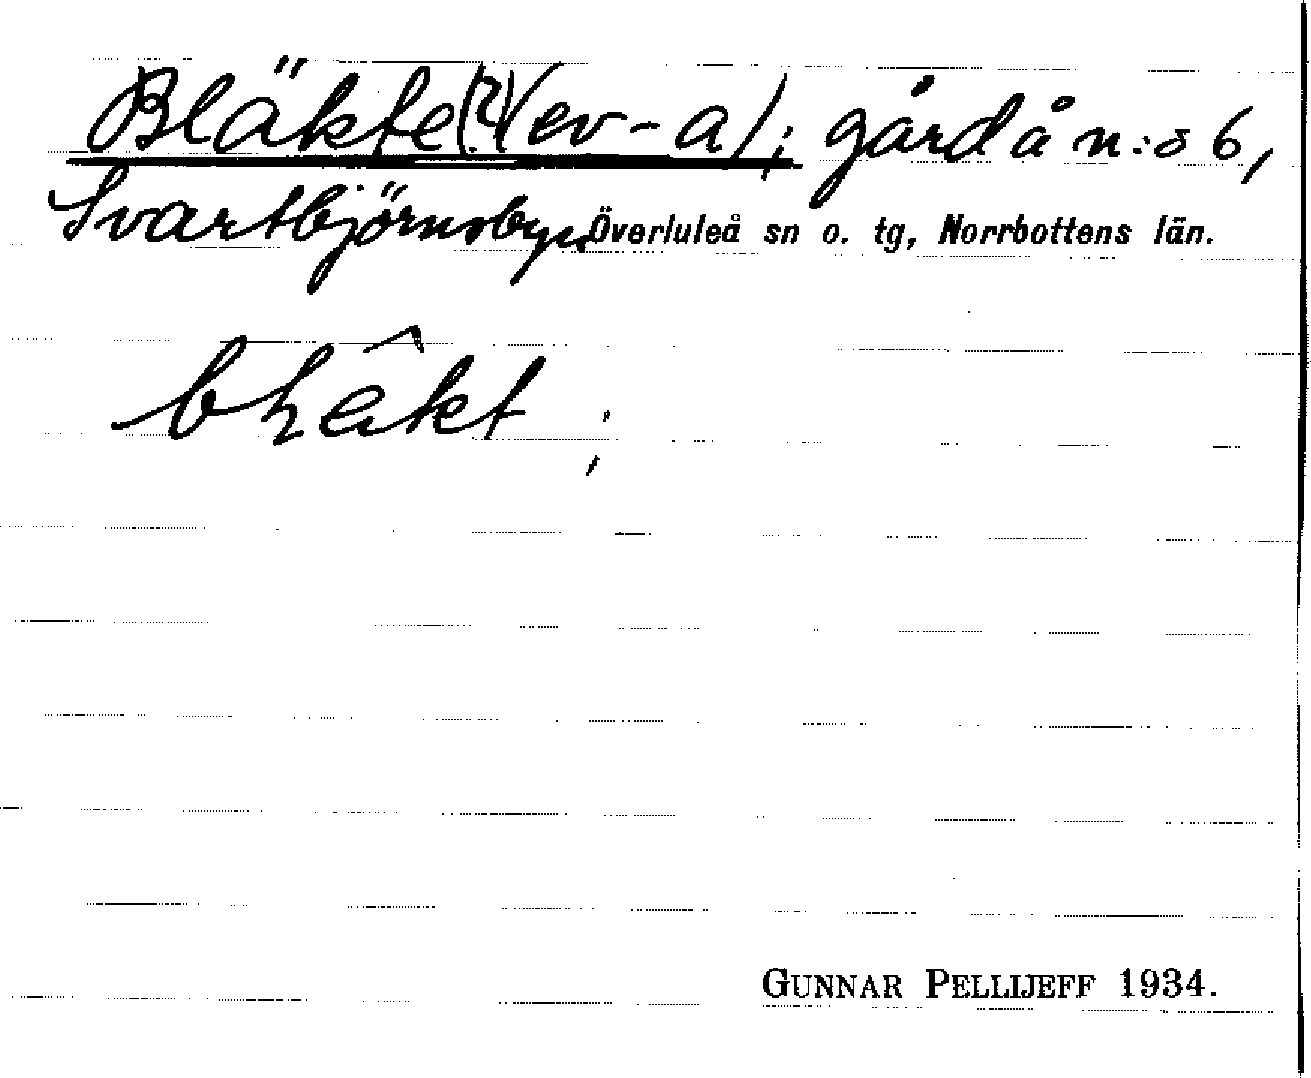 Bläkte(?)(ev -a); gård å n:o 6,
Svartbjörnsbyn Överluleå sn o. tg, Norrbottens län.
GUNNAR PELLIJEFF 1934.